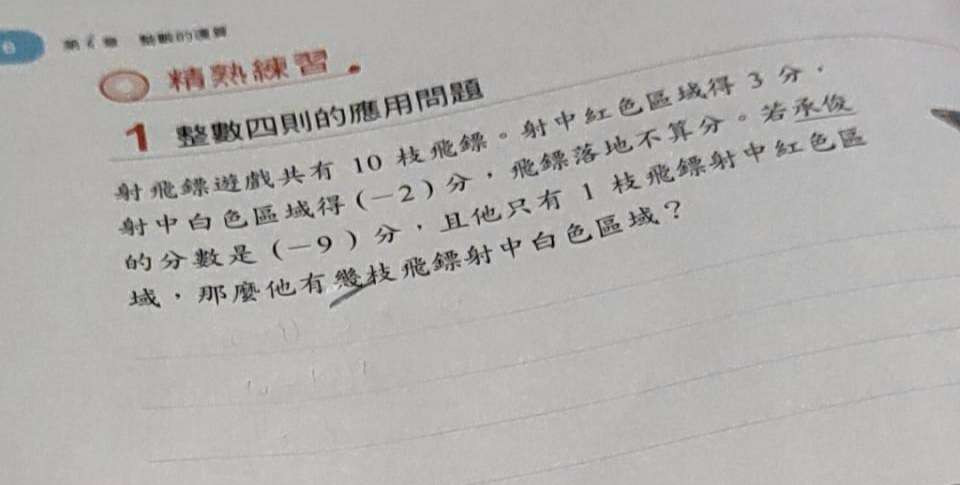 第 章 整數的運算
精熟練習
1 整數四則的應用問題
射飛鏢遊戲共有 10 枝飛鏢。射中紅色區域得 3 分，
射中白色區域得（－2）分，飛鏢落地不算分。若承俊
的分數是（－9）分，且他只有 1 枝飛鏢射中紅色區
域，那麼他有幾枝飛鏢射中白色區域？